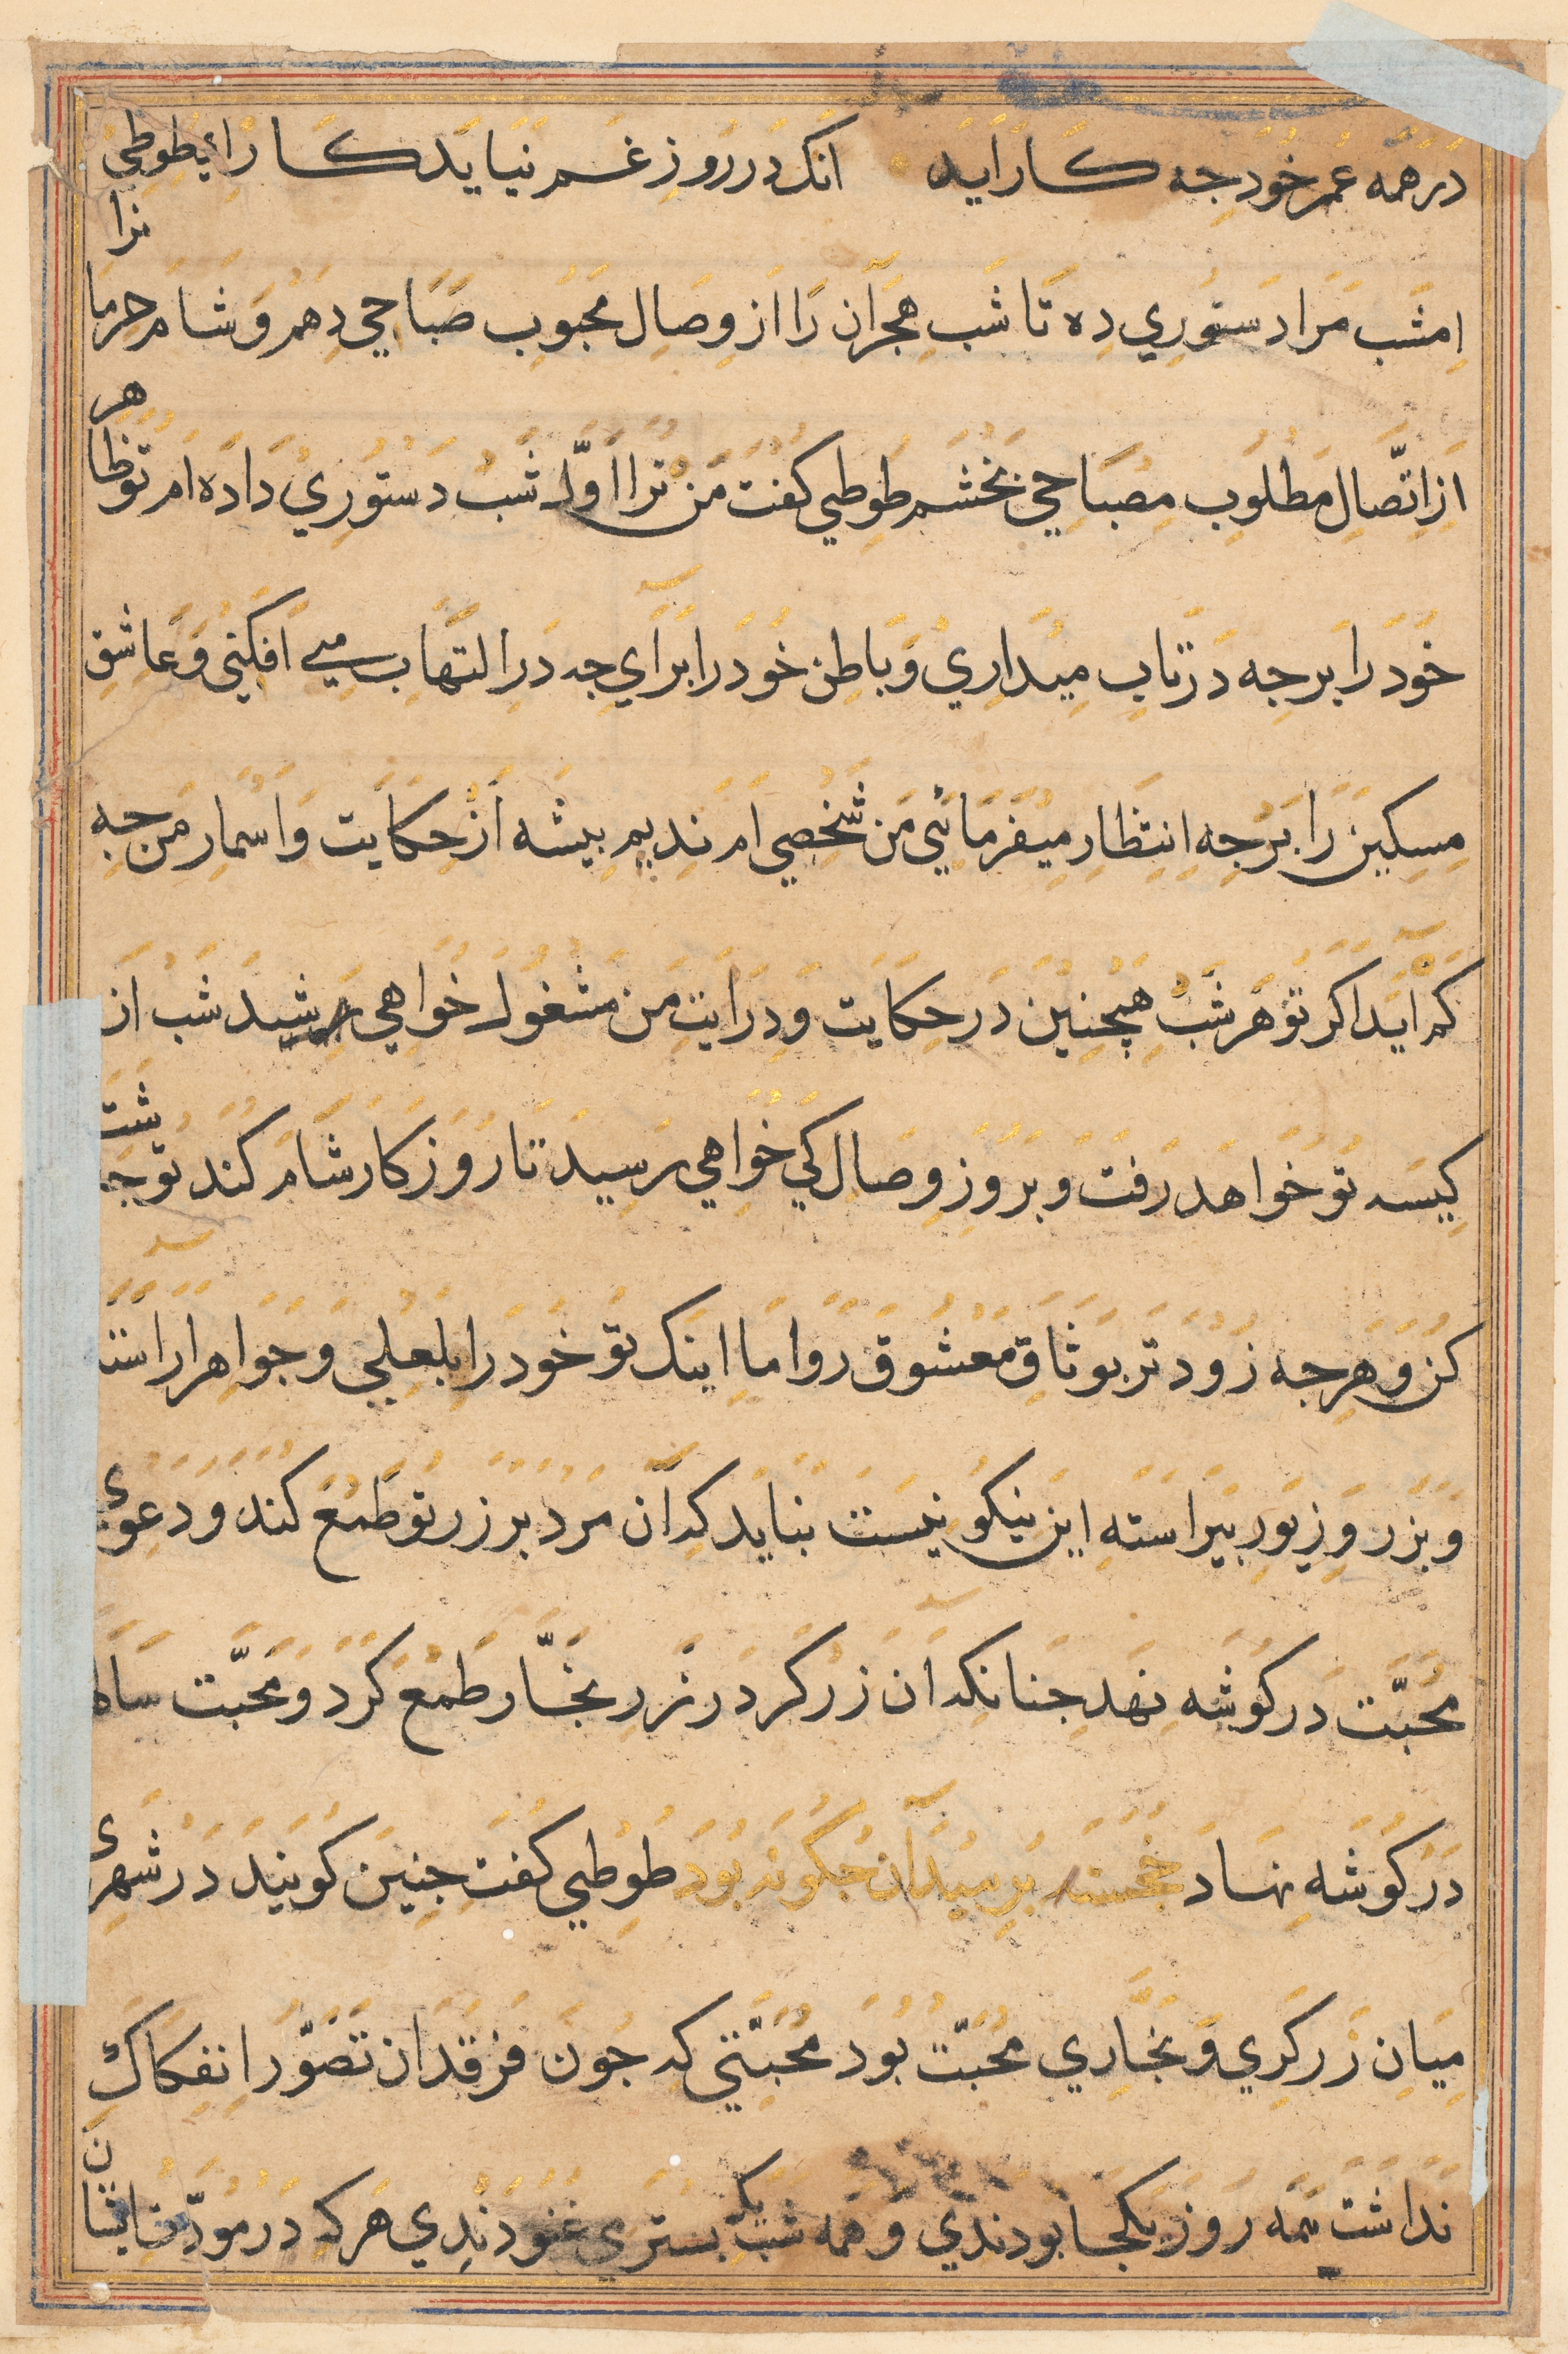 در همه عمر خود جه کار اید انک در روز غم نیاید کار ای طوطی
امشب مرا دستوری ده تا شب هجران را از وصال محبوب صباحی دهم و شام حرما نرا
از اتصال مطلوب مصباحی بخشم طوطی کفت من ترا اول شب دستوری داده ام تو ظاهر
خود را بر جه در تاب میداری و باطن خود را برای جه در التهاب می افکنی و عاشق
مسکین را بر جه انتظار میفرمائی من شخصی ام ندیم بیشه از حکایت و اسمار من جه
کم اید اکر تو هر شب همچنین در حکایت و درایت من مشغول خواهی شد شب از
کیسه تو خواهد رفت و بروز وصال کی خواهی رسید تا روز کار شام کند تو جاشت
کن و هرجه زود تر بوثاق معشوق رو اما اینک تو خود را بلعلی و جواهر اراسته
و بزر و زیور بیراسته این نیکو نیست نباید که آن مرد بر زر تو طمع کند و دعوی
محبت در کوشه نهد جنانکه ان زرکر در زر نجار طمع کرد و محبت سالها
در کوشه نهاد خجسته برسید آن جکونه بود طوطی کفت جنین کویند در شهری
میان زرکری و نجاری محبت بود محبتی که جون فرقدان تصور انفکاک
نداشت همه روز یکجا بودندی و همه شب بیک بستری غنودندی هرکه در مودت ایشان